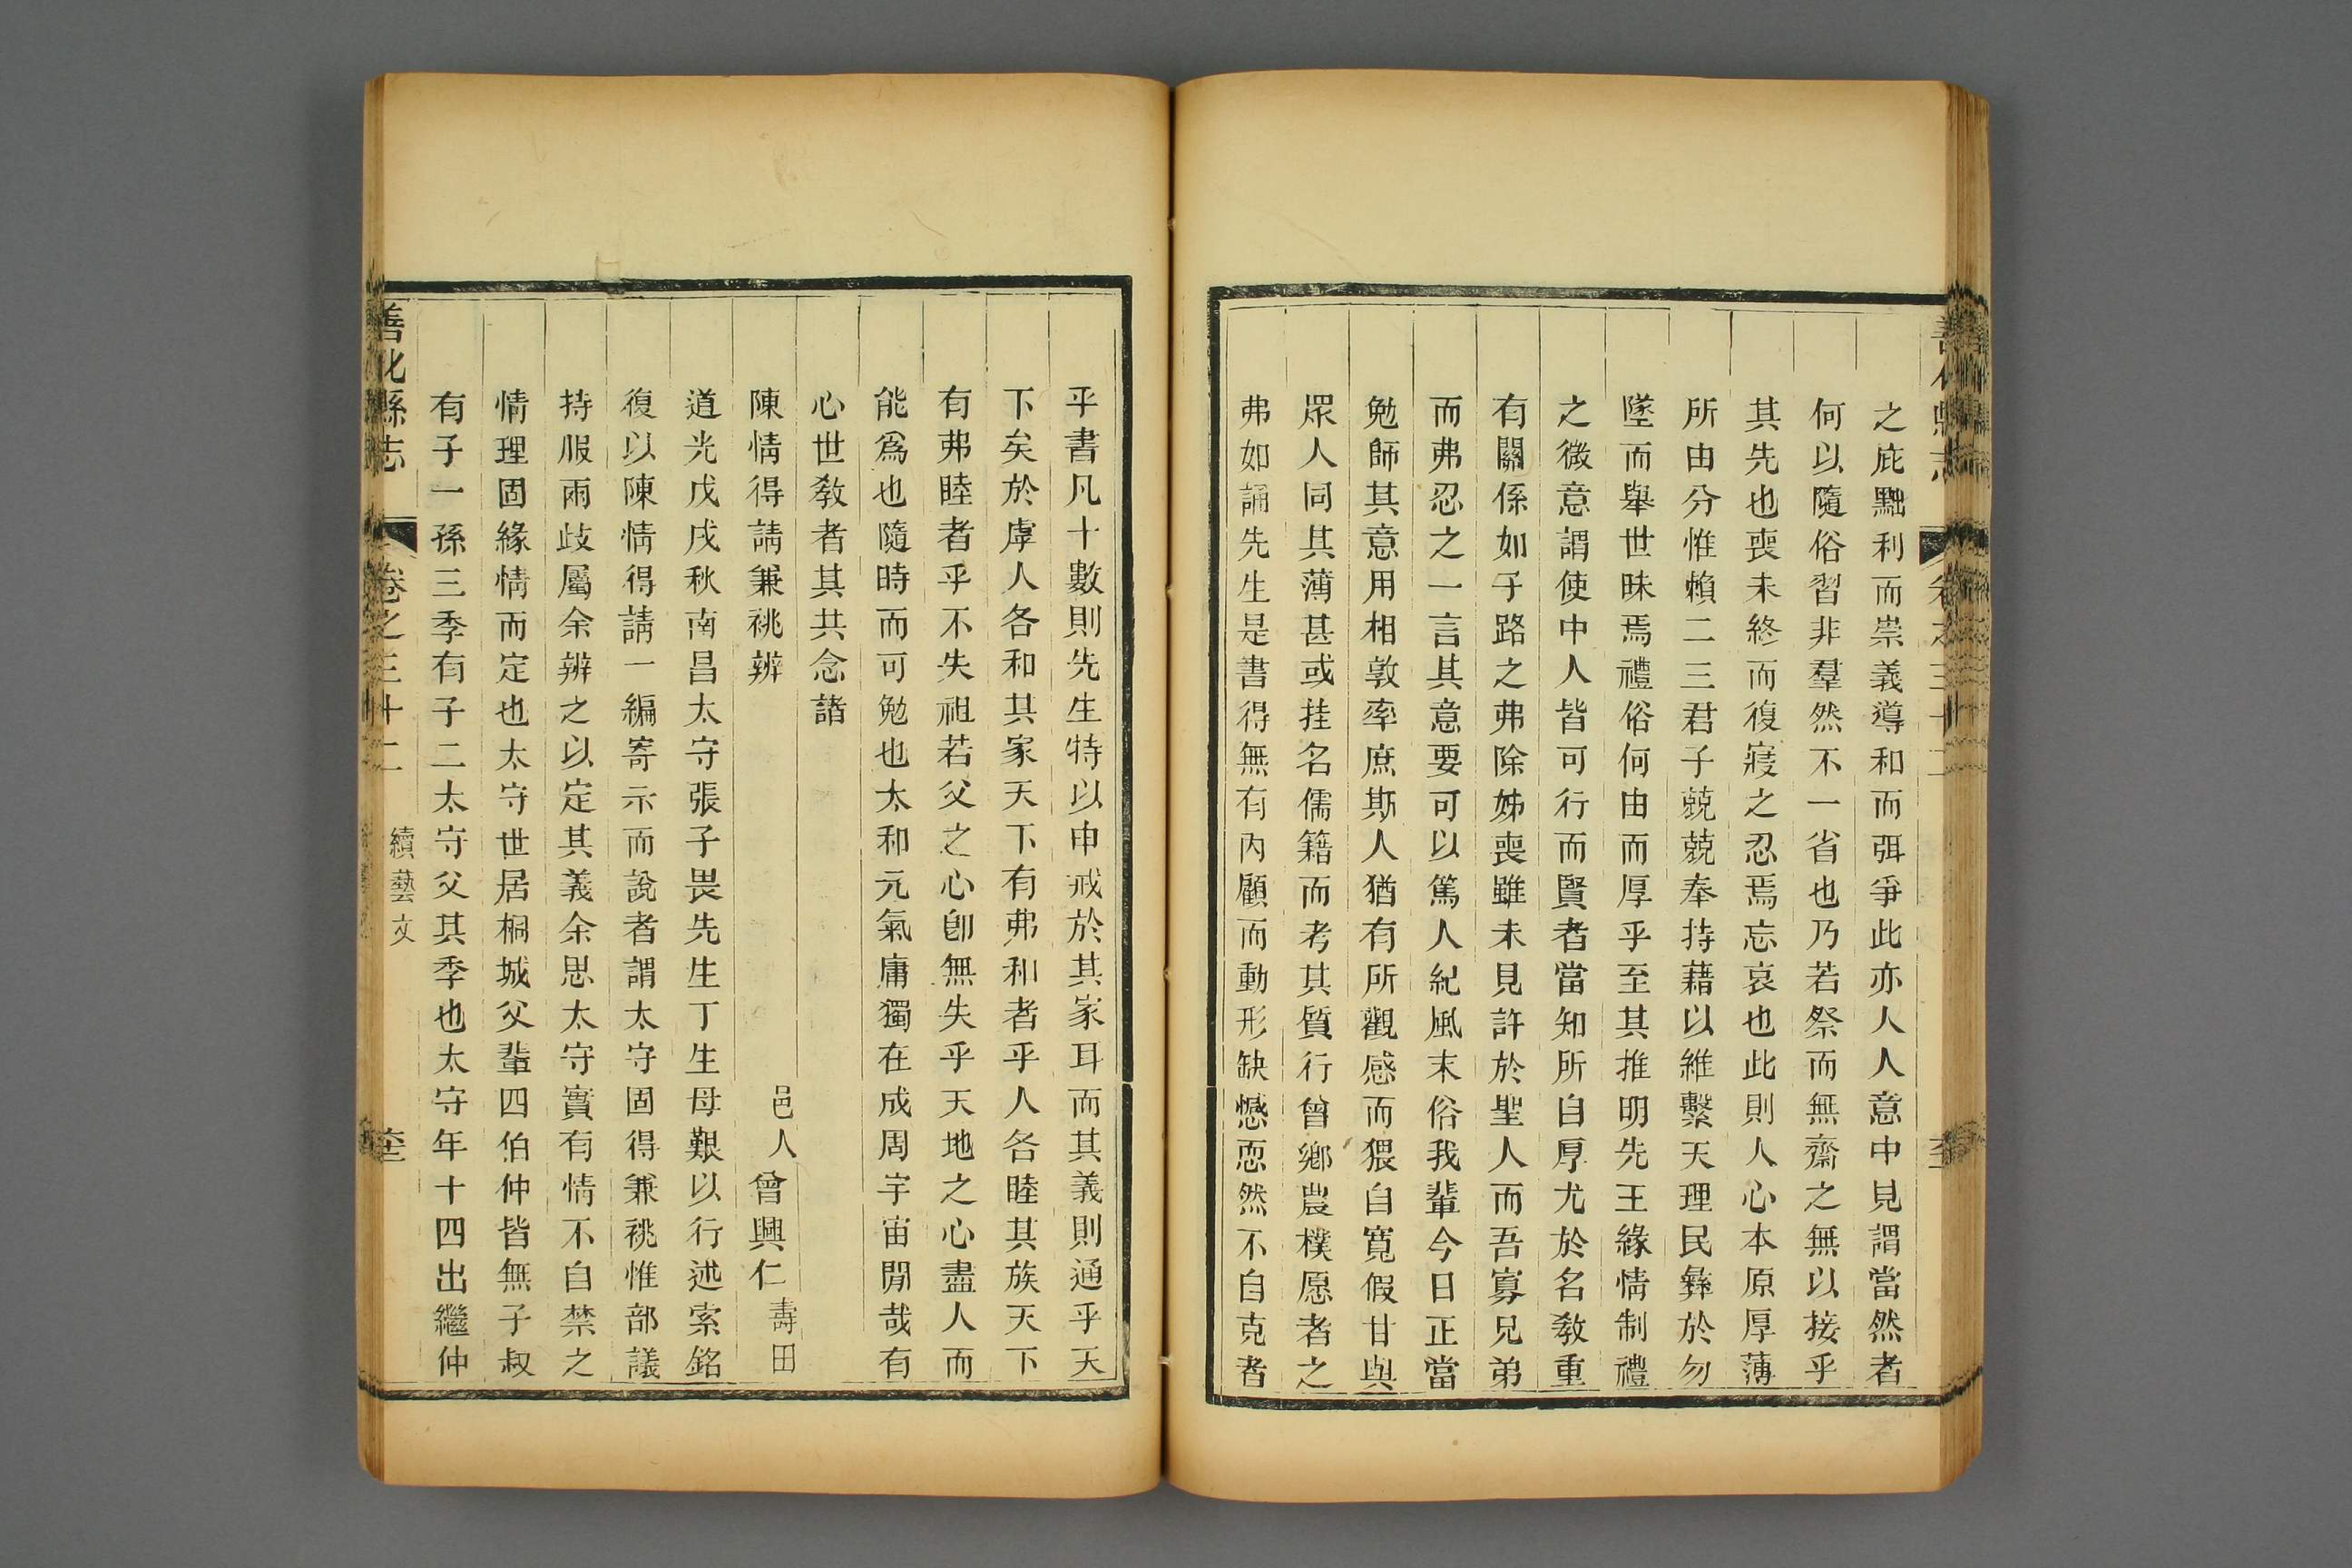 之庇黜利而崇義導和而弭爭此亦人人意中見謂當然者
何以隨俗習非羣然不一省也乃若祭而無齋之無以接乎
其先也喪未終而復寢之忍焉忘哀也此則人心本原厚薄
所由分惟賴二三君子兢兢奉持藉以維繫天理民彝於勿
墜而舉世昧焉禮俗何由而厚乎至其推明先王緣情制禮
之微意謂使中人皆可行而賢者當知所自厚尤於名教重
有關係如子路之弗除姊喪雖未見許於聖人而吾寡兄弟
而弗忍之一言其意要可以篤人紀風末俗我輩今日正當
勉師其意用相敦率庶斯人猶有所觀感而猥自寬假甘與
眾人同其薄甚或挂名儒籍而考其質行曾鄉農樸愿者之
弗如誦先生是書得無有內顧而動形缺憾恧然不自克者
乎書凡十數則先生特以申戒於其家耳而其義則通乎天
下矣於虖人各和其家天下有弗和者乎人各睦其族天下
有弗睦者乎不失祖若父之心卽無失乎天地之心盡人而
能爲也隨時而可勉也太和元氣庸獨在成周宇宙閒哉有
心世教者其共念諸
陳情得請兼祧辨
邑人曾興仁壽田
道光戊戌秋南昌太守張子畏先生丁生母艱以行述索銘
復以陳情得請一編寄示而說者謂太守固得兼祧惟部議
持服兩歧屬余辨之以定其義余思太守實有情不自禁之
情理固緣情而定也太守世居桐城父輩四伯仲皆無子叔
有子一孫三季有子二太守父其季也太守年十四出繼仲
善化縣志
卷之三十二
續藝文